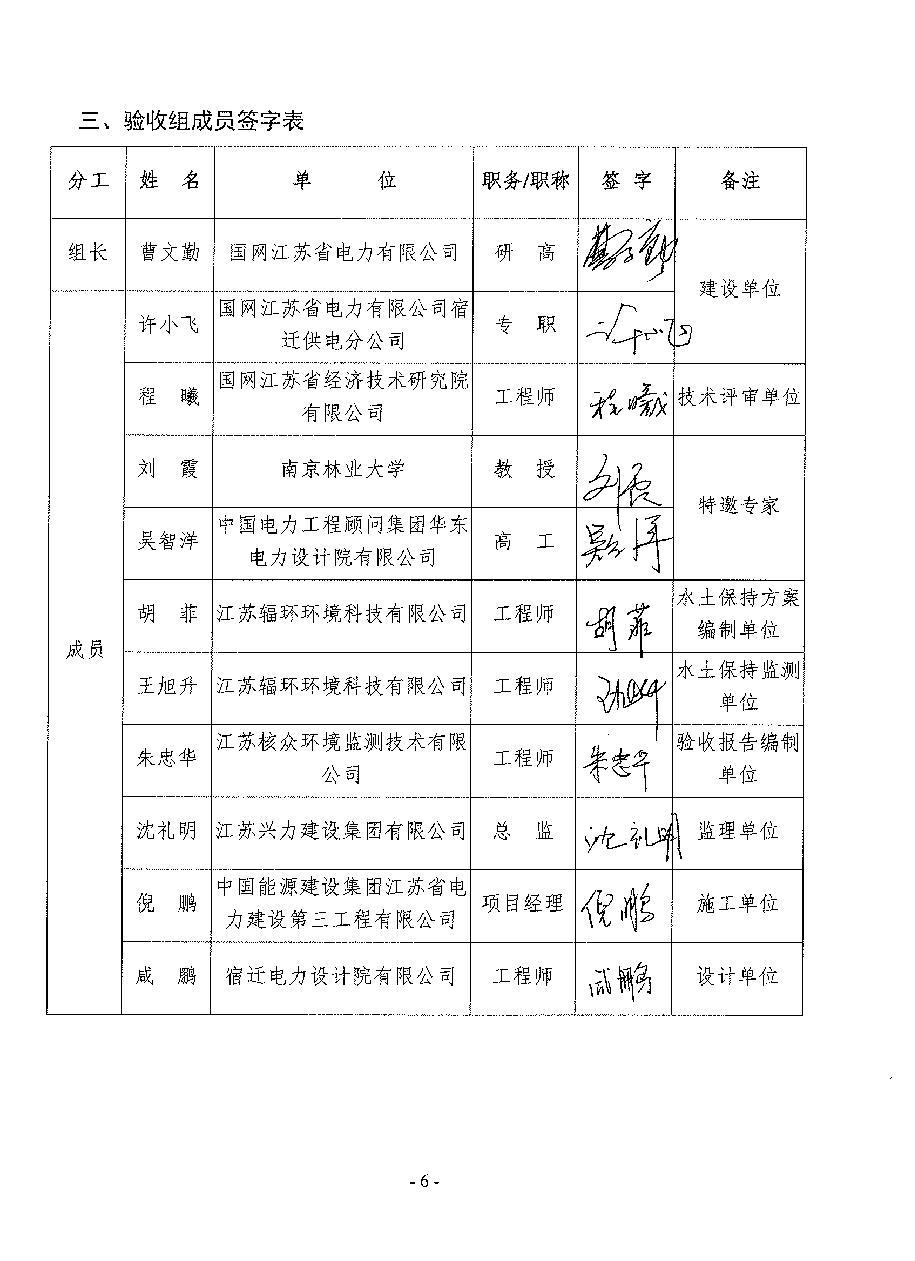 三、验收组成员签字表
分工 姓 名 单 位 职务/职称 签 字 备注
组长 曹文勤 国网江苏省电力有限公司 研 高 曹文勤 建设单位
成员
许小飞 国网江苏省电力有限公司宿
迁供电分公司 专 职 许小飞
程 曦 国网江苏省经济技术研究院
有限公司 工程师 程曦 技术评审单位
刘 霞 南京林业大学 教 授 刘霞 特邀专家
吴智洋 中国电力工程顾问集团华东
电力设计院有限公司 高 工
胡 菲 江苏辐环环境科技有限公司 工程师 胡菲 水土保持方案
编制单位
王旭升 江苏辐环环境科技有限公司 工程师 水土保持监测
单位
朱忠华 江苏核众环境监测技术有限
公司 工程师 朱忠华 验收报告编制
单位
沈礼明 江苏兴力建设集团有限公司 总 监 沈礼明 监理单位
倪 鹏 中国能源建设集团江苏省电
力建设第三工程有限公司 项目经理 倪鹏 施工单位
咸 鹏 宿迁电力设计院有限公司 工程师 咸鹏 设计单位
- 6 -